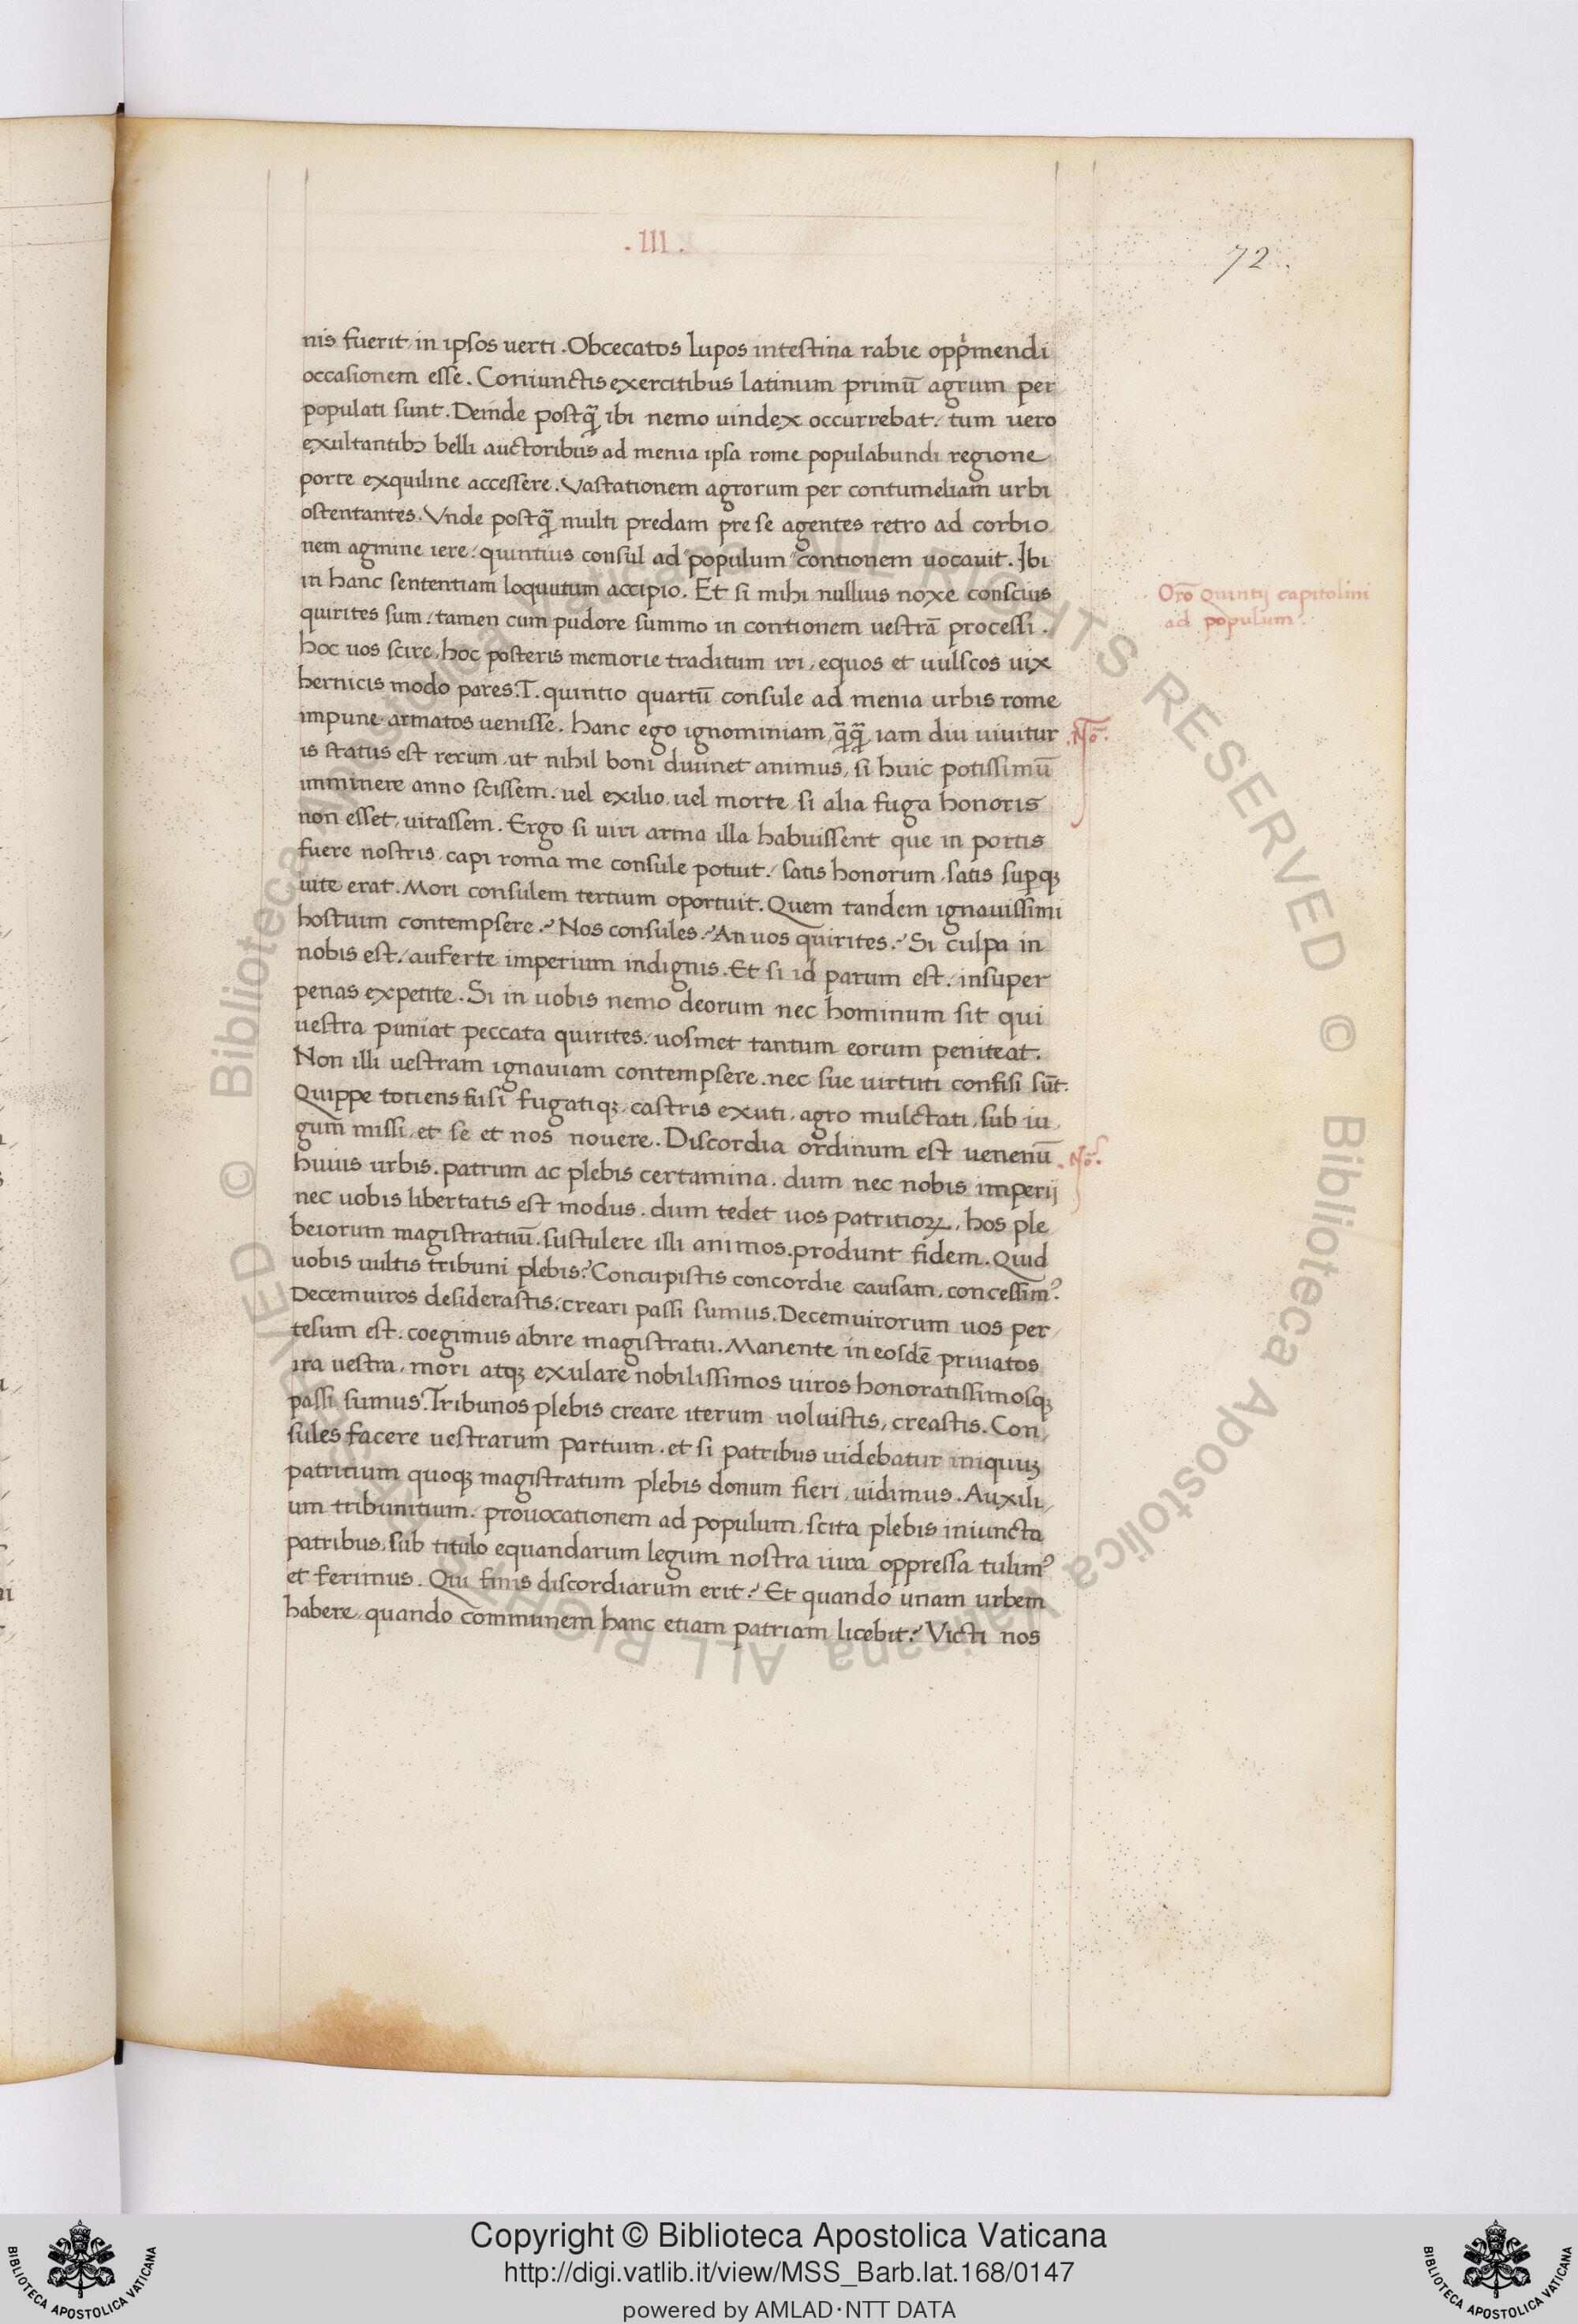 .III.
72
nis fuerit in ipsos uerti. Obcecatos lupos intestina rabie opp̓mendi
occasionem esse. Coniunctis exercitibus latinum primū agrum per
populati sunt. Deinde postq̄ ibi nemo uindex occurrebat. tum uero
exultantibꝫ belli auctoribus ad menia ipsa rome populabundi regione
porte exquiline accessere. Vastationem agrorum per contumeliam urbi
ostentantes. Vnde postq̄ multi predam pre se agentes retro ad corbio
nem agmine iere. quintius consul ad "populum "contionem uocauit. Ibi
in hanc sententiam loquutum accipio. Et si mihi nullius noxe conscius
Orō Quintij capitolini
ad populum.
quirites sum. tamen cum pudore summo in contionem uestrā processi.
hoc uos scire, hoc posteris memorie traditum iri, equos et uulscos uix
hernicis modo pares. T. quintio quartū consule ad menia urbis rome
impune armatos uenisse. hanc ego ignominiam, q̄q̄ iam diu uiuitur
.No.
is status est rerum, ut nihil boni diuinet animus, si huic potissimū
imminere anno scissem. uel exilio uel morte si alia fuga honoris
non esset, uitassem. Ergo si uiri arma illa habuissent que in portis
fuere nostris, capi roma me consule potuit. satis honorum, satis supqꝫ
uite erat. Mori consulem tertium oportuit. Quem tandem ignauissimi
hostium contempsere? Nos consules? An uos quirites? Si culpa in
nobis est. auferte imperium indignis. Et si id parum est. insuper
penas expetite. Si in uobis nemo deorum nec hominum sit qui
uestra puniat peccata quirites. uosmet tantum eorum peniteat.
Non illi uestram ignauiam contempsere. nec sue uirtuti confisi sūt.
Quippe totiens fusi fugatiqꝫ, castris exuti, agro mulctati, sub iu
gum missi, et se et nos nouere. Discordia ordinum est uenenū
.No.
huius urbis. patrum ac plebis certamina. dum nec nobis imperij
nec uobis libertatis est modus. dum tedet uos patritioꝝ, hos ple
beiorum magistratuū. sustulere illi animos. produnt fidem. Quid
uobis uultis tribuni plebis? Concupistis concordie causam. concessimꝰ.
Decemuiros desiderastis. creari passi sumus. Decemuirorum uos per
tesum est. coegimus abire magistratu. Manente in eosdē priuatos
ira uestra, mori atqꝫ exulare nobilissimos uiros honoratissimosqꝫ
passi sumus. Tribunos plebis creare iterum uoluistis, creastis. Con
sules facere uestrarum partium. et si patribus uidebatur iniquuꝫ
patritium quoqꝫ magistratum plebis donum fieri, uidimus. Auxili
um tribunitium. prouocationem ad populum, scita plebis iniuncta
patribus, sub titulo equandarum legum nostra iura oppressa tulimꝰ
et ferimus. Qui finis discordiarum erit? Et quando unam urbem
habere, quando communem hanc etiam patriam licebit? Victi nos
Copyright © Biblioteca Apostolica Vaticana
http://digi.vatlib.it/view/MSS_Barb.lat.168/0147
powered by AMLAD·NTT DATA
BIBLIOTECA APOSTOLICA VATICANA
BIBLIOTECA APOSTOLICA VATICANA